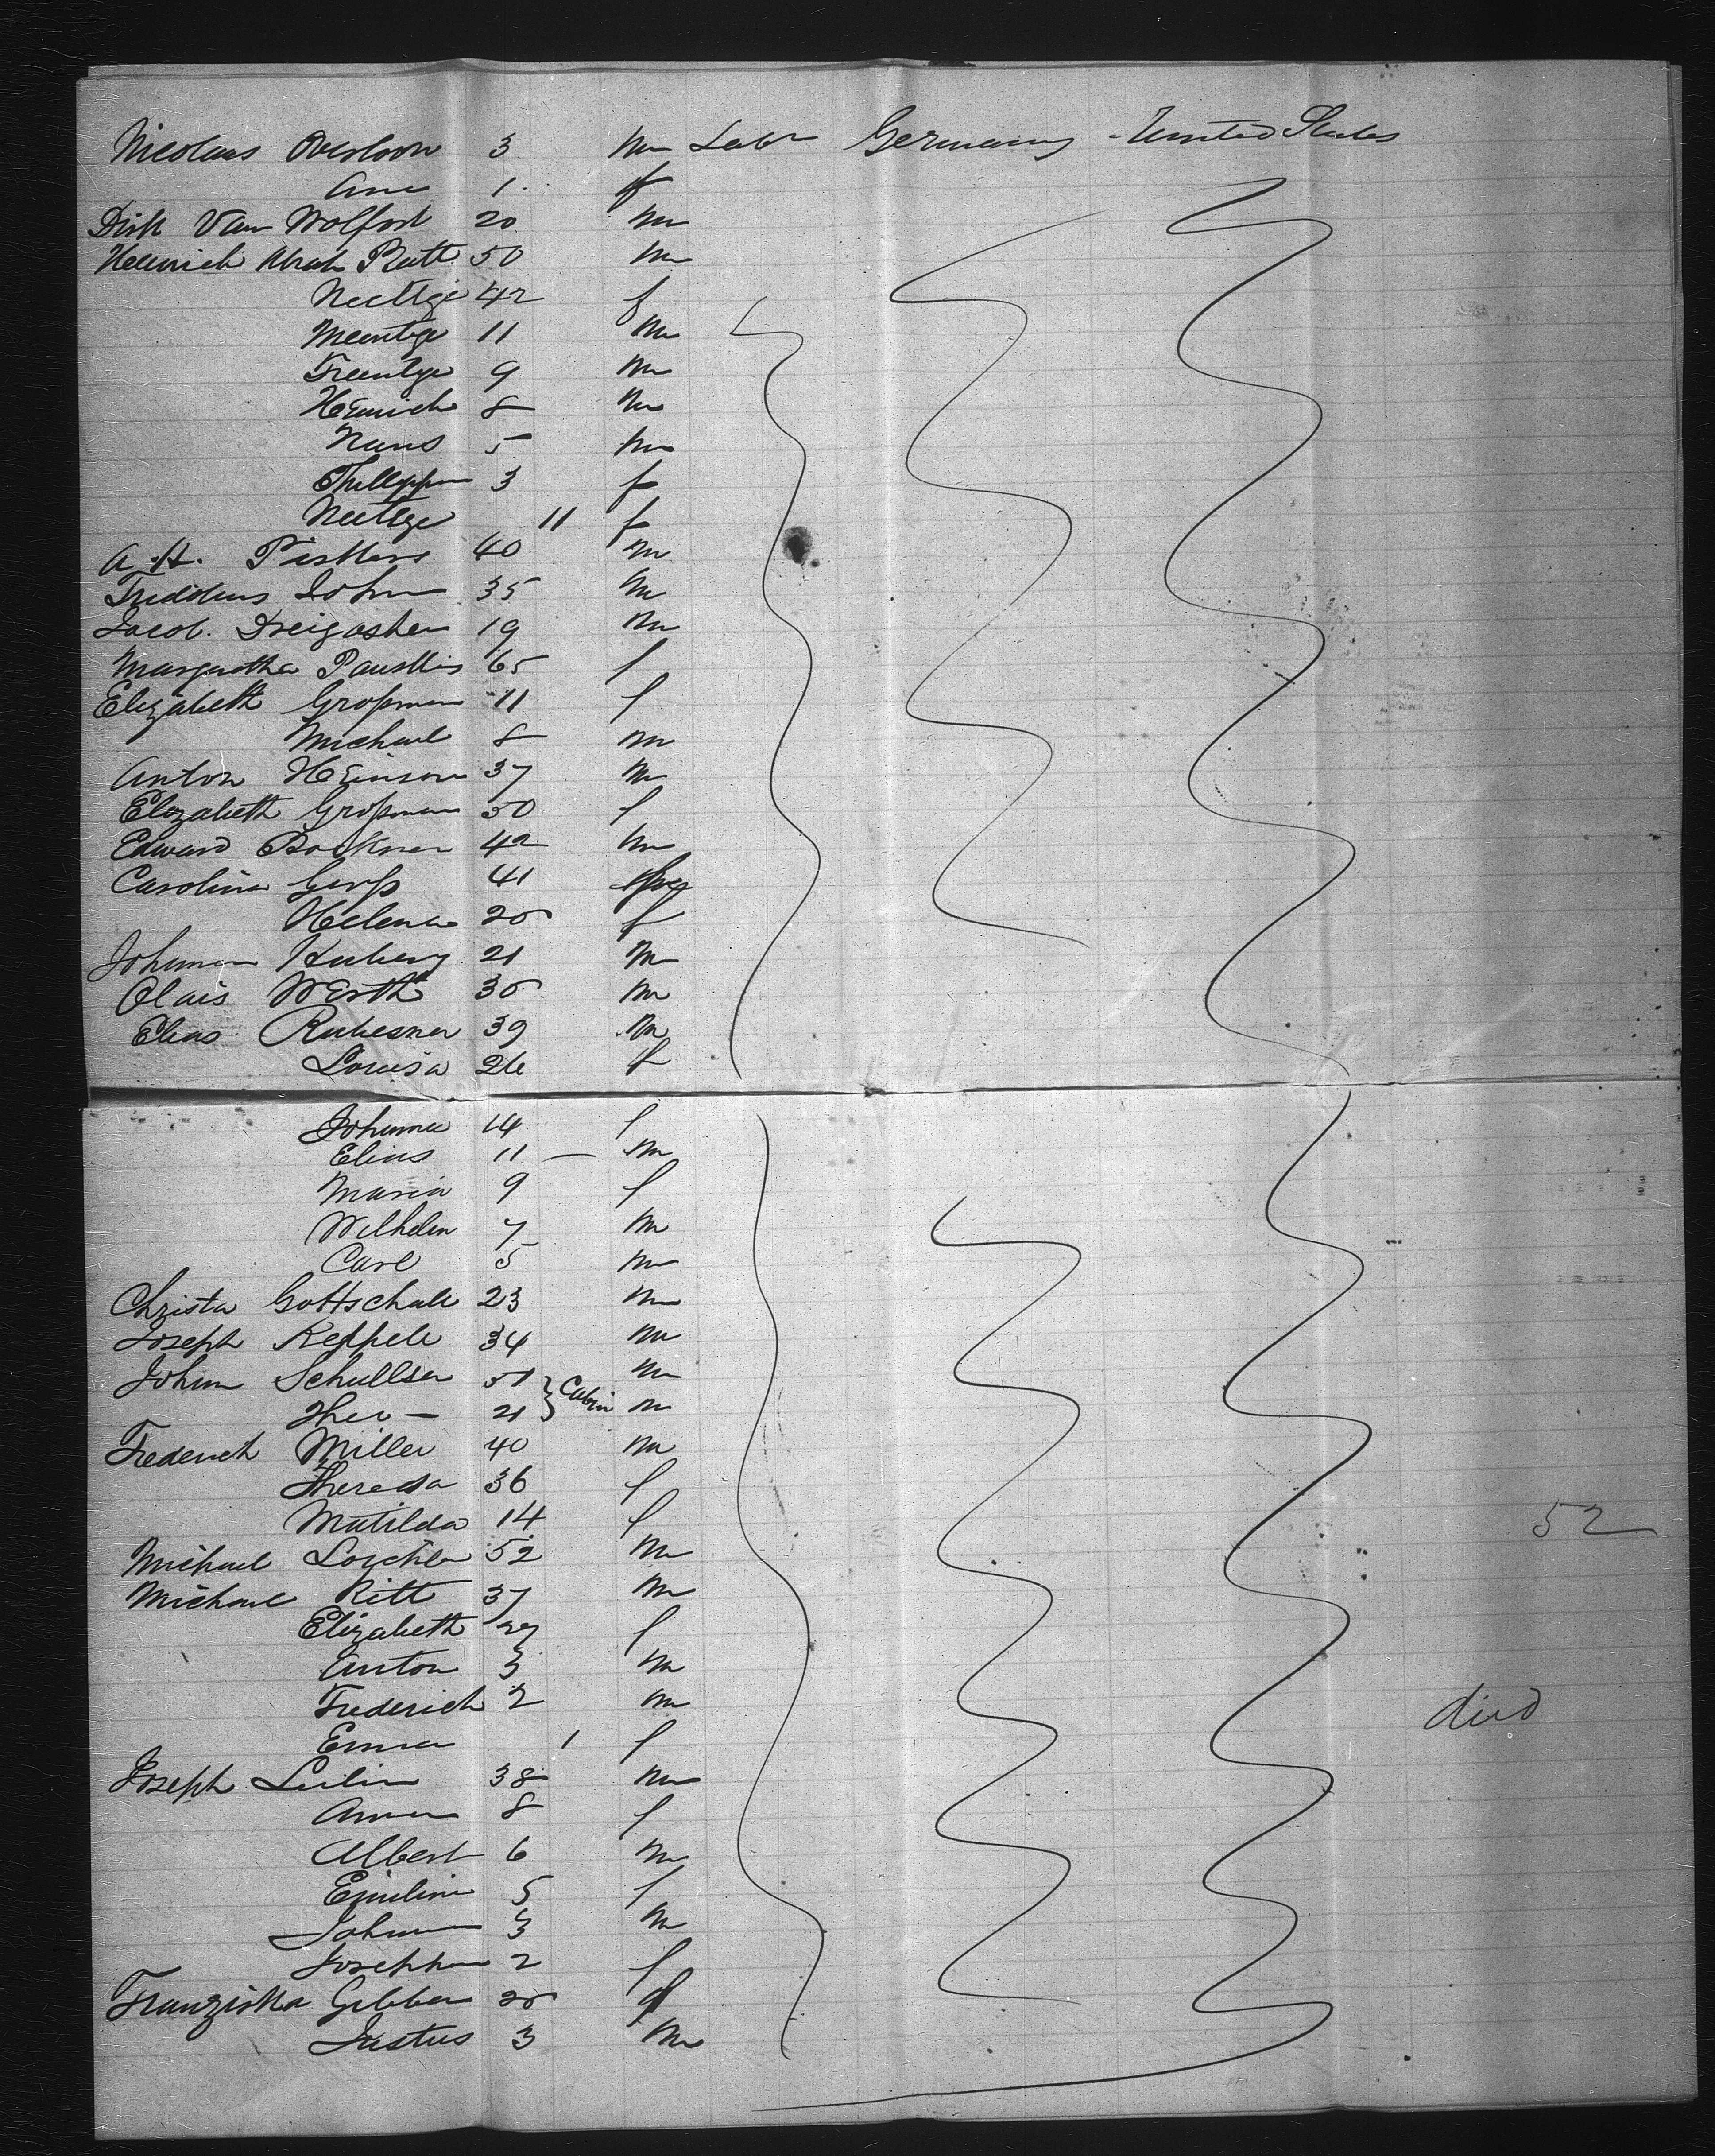 Nicolaus Overloon 3 m Labr Germany United States
Ana 1 f
Dirk Van Wolfort 20 m
Heinrich Abrah Ratt 50 m
Neettge 42 f
Meentge 11 m
Freentge 9 m
Heinrich 8 m
Hans 5 m
3 f
Neettge 11 f
A. H. 40 m
John 35 m
Jacob 19 m
Margaretha 65 f
Elizabeth Groſsman 11 f
Michael 8 m
Anton Heinson 37 m
Elizabeth Groſsman 50 f
Edward 42 m
Carolina 41
Helena 20 f
Johann 21 m
Clais Werth 30 m
Elias Rubesner 39 m
Louisa 26 f
Johanna 14 f
Elias 11 — m
Maria 9 f
Wilhelm 7 m
Carl 5 m
Christa Gottschall 23 m
Joseph Keppele 34 m
Johan Schullser 51 } Cabin m
Theo — 21 m
Frederich Miller 40 m
Theresa 36 f
Matilda 14 f
52
Michael 52 m
Michael Ritt 37 m
Elizabeth 27 f
Anton 3 m
Frederich 2 m died
Emma 1 f
Joseph 38 m
Anna 8 f
Albert 6 m
Emeline 5 f
Johann 3 m
Josephine 2 f
Franziska Gebber 20 f
Justus 3 m